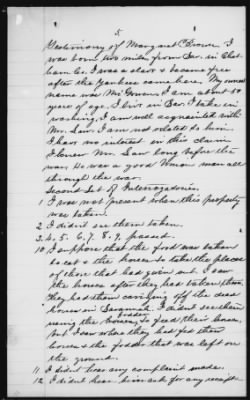 5
Testimony of Margaret Brown I
was born five miles from Sav. in Chat
ham Co. I was a slave & became free
after the Yankees came here. My owners
name was Mr. I am about 50
years of age. I live in Sav. I take in
washing. I am well acquainted with
Mr. Law. I am not related to him.
I have no interest in this claim.
I knew Mr. Law long before the
war. He was a good Union man all
through the war.
Second Set of Interrogatories.
1 I was not present when this property
was taken.
2 I didnt see them taken.
3. 4. 5. 6. 7. 8. 9. passed.
10 I suppose that the food was taken
to eat & the horses to take the places
of those that had given out. I saw
the horses after they had taken them.
They had them carrying off the dead
horses in Savannah. I didnt see them
using the fodder to feed their horses,
but I saw where they had fed their
horses & the fodder that was left on
the ground.
11 I didnt hear any complaint made.
12 I didnt hear him ask for any receipt